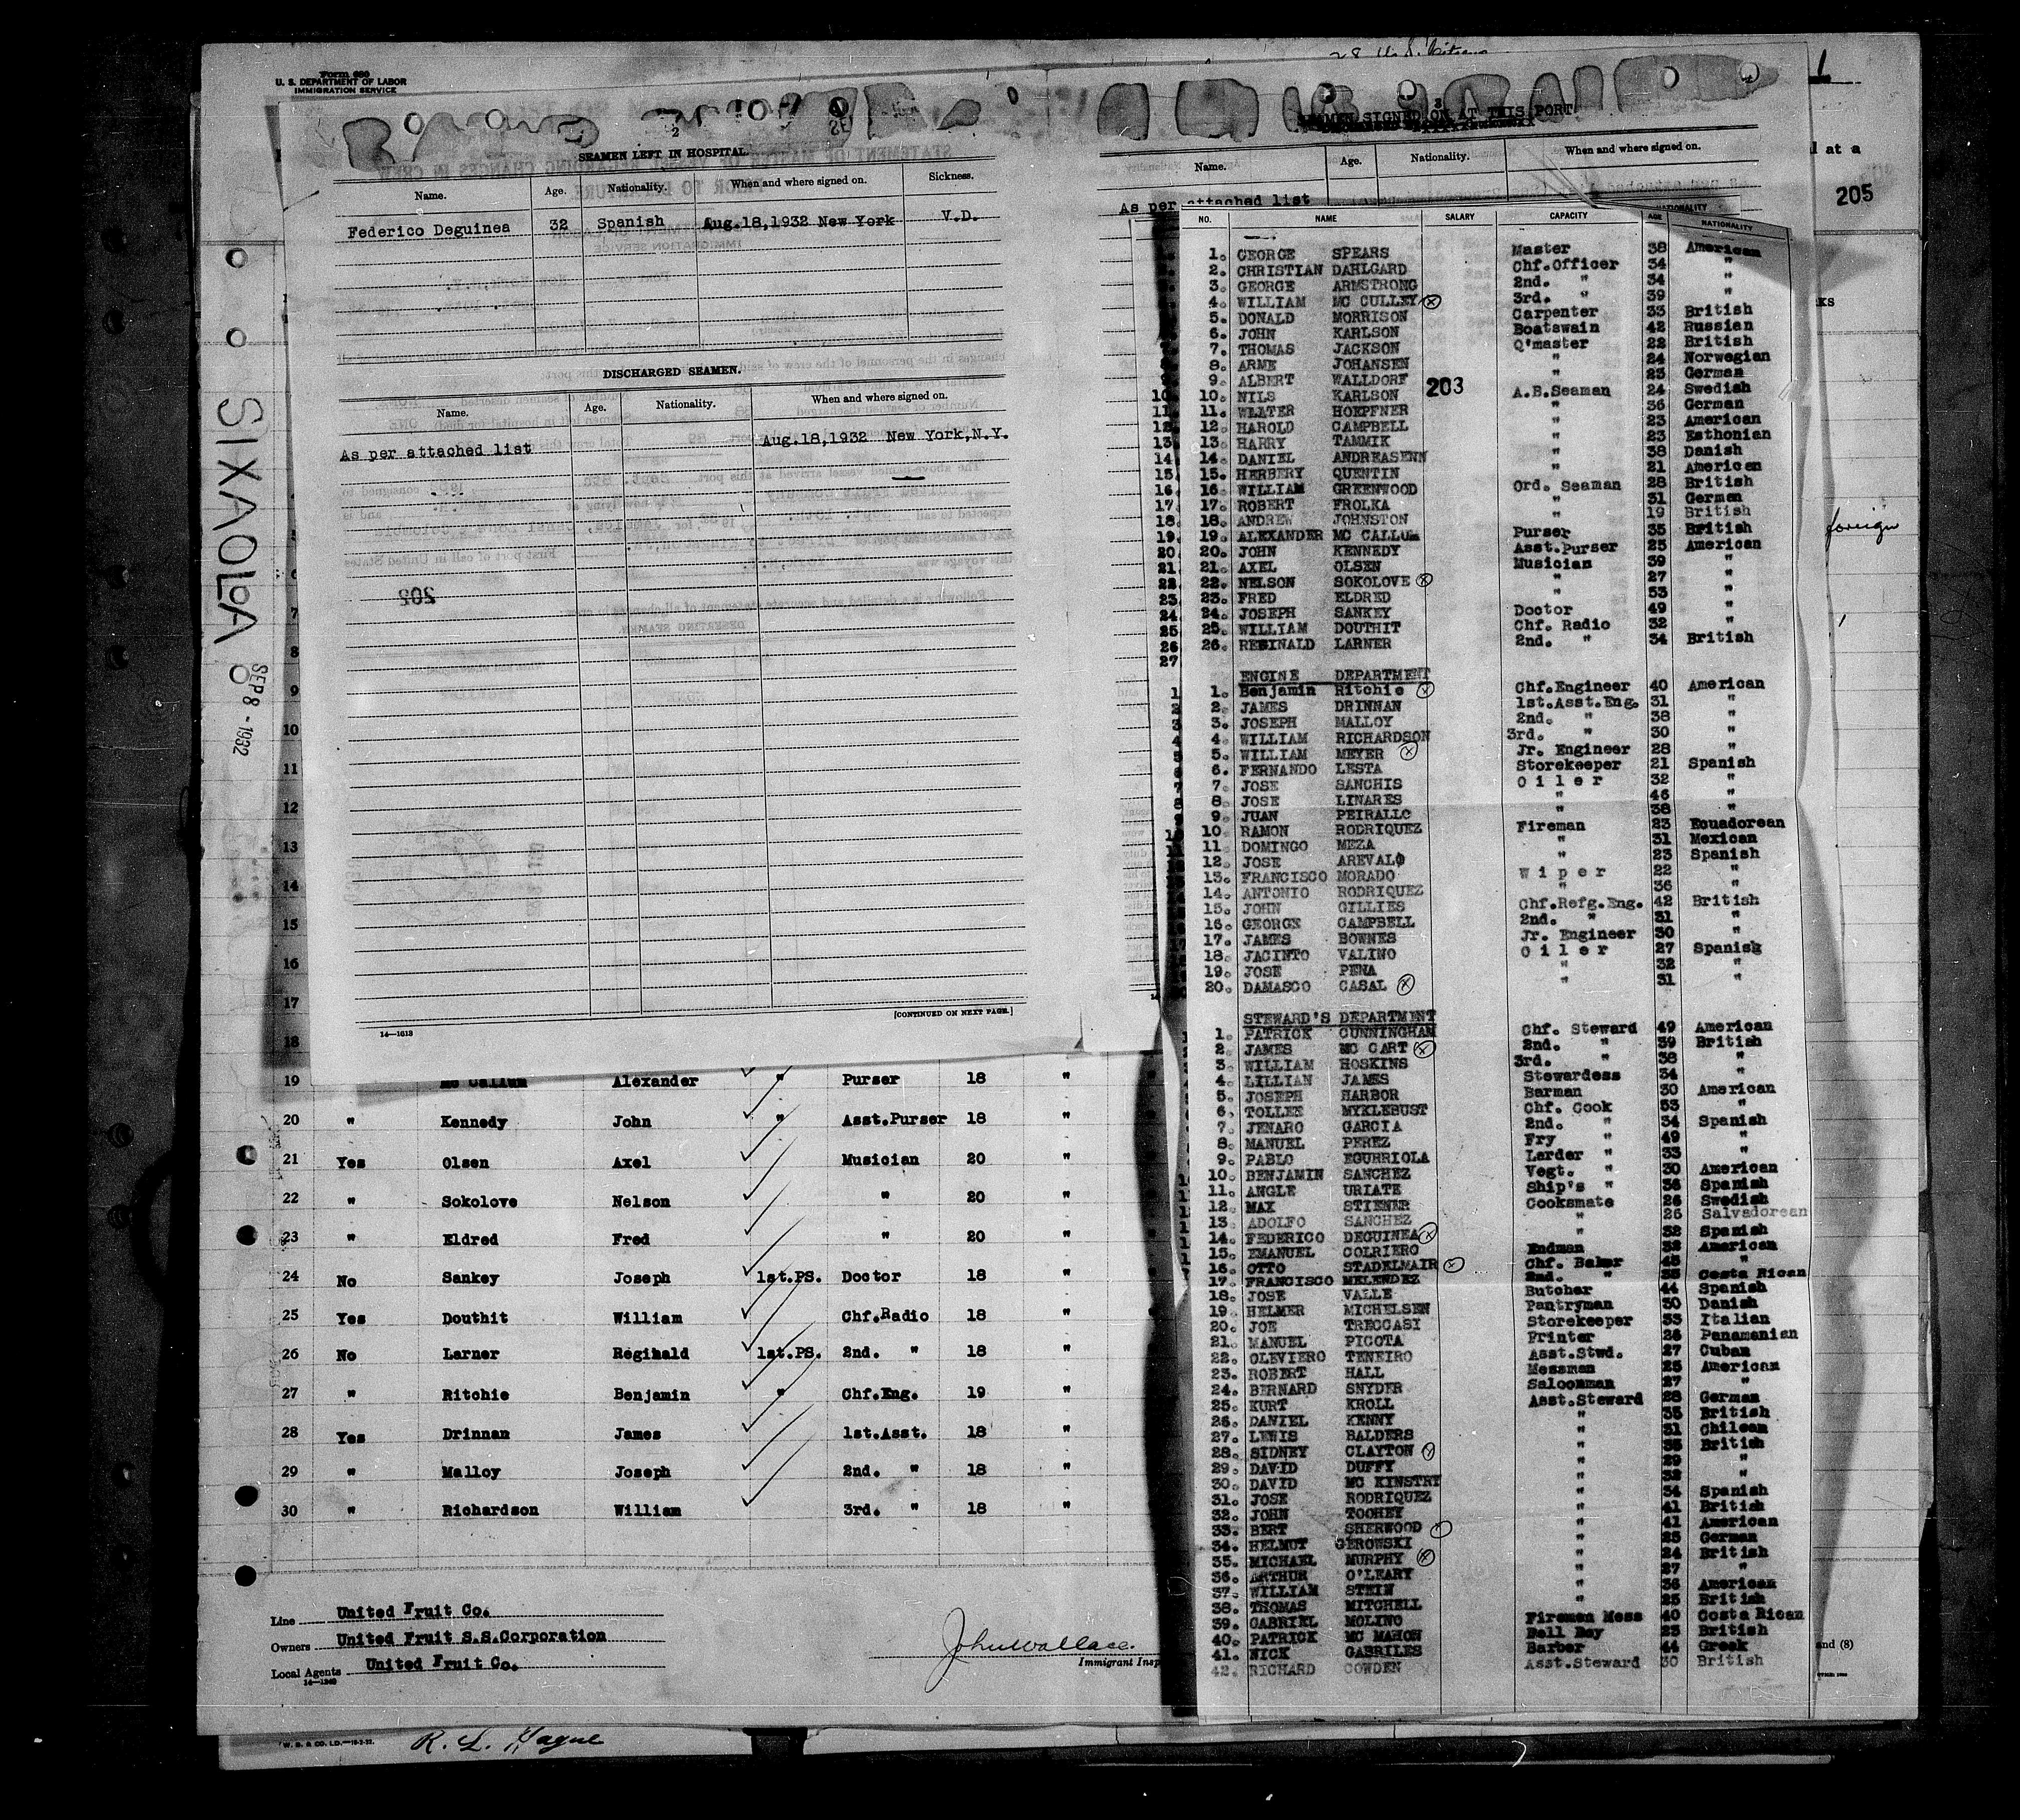 28 U.S. Citizens
Form 680
U. S. DEPARTMENT OF LABOR
IMMIGRATION SERVICE
1
d at a
205
foreign
SIXAOLA
SEP 8 - 1932
2
SEAMEN LEFT IN HOSPITAL.
Name. Age. Nationality. When and where signed on. Sickness.
Federico Deguinea 32 Spanish Aug.18,1932 New York V.D.
DISCHARGED SEAMEN.
Name. Age. Nationality. When and where signed on.
As per attached list Aug.18,1932 New York,N.Y.
202
14—1613
[CONTINUED ON NEXT PAGE.]
3
SEAMEN SIGNED ON AT THIS PORT
Name. Age. Nationality. When and where signed on.
As per attached list
NO. NAME SALARY CAPACITY AGE NATIONALITY
1. GEORGE SPEARS Master 38 American
2. CHRISTIAN DAHLGARD Chf.Officer 34 "
3. GEORGE ARMSTRONG 2nd. " 34 "
4. WILLIAM MC CULLEY 3rd. " 39 "
5. DONALD MORRISON Carpenter 33 British
6. JOHN KARLSON Boatswain 42 Russian
7. THOMAS JACKSON Q'master 22 British
8. ARME JOHANSEN " 24 Norwegian
9. ALBERT WALLDORF " 23 German
203
10. NILS KARLSON A.B.Seaman 24 Swedish
11. WLATER HOEPFNER " 36 German
12. HAROLD CAMPBELL " 23 American
13. HARRY TAMMIK " 23 Esthonian
14. DANIEL ANDREASENN " 38 Danish
15. HERBERY QUENTIN " 21 American
16. WILLIAM GREENWOOD Ord. Seaman 28 British
17. ROBERT FROLKA " 31 German
18. ANDREW JOHNSTON " 19 British
19. ALEXANDER MC CALLUM Purser 35 British
20. JOHN KENNEDY Asst.Purser 25 American
21. AXEL OLSEN Musician 39 "
22. NELSON SOKOLOVE " 27 "
23. FRED ELDRED " 53 "
24. JOSEPH SANKEY Doctor 49 "
25. WILLIAM DOUTHIT Chf. Radio 32 "
26. REGINALD LARNER 2nd. " 34 British
ENGINE DEPARTMENT
1. Benjamin Ritchie Chf.Engineer 40 American
2. JAMES DRINNAN 1st.Asst.Eng. 31 "
3. JOSEPH MALLOY 2nd. " 38 "
4. WILLIAM RICHARDSON 3rd. " 30 "
5. WILLIAM MEYER Jr. Engineer 28 "
6. FERNANDO LESTA Storekeeper 21 Spanish
7. JOSE SANCHIS O i l e r 32 "
8. JOSE LINARES " 46 "
9. JUAN PEIRALLC " 38 "
10. RAMON RODRIQUEZ Fireman 23 Ecuadorean
11. DOMINGO MEZA " 31 Mexican
12. JOSE AREVALO " 23 Spanish
13. FRANCISCO MORADO W i p e r 22 "
14. ANTONIO RODRIQUEZ " 36 "
15. JOHN GILLIES Chf.Refg.Eng. 42 British
16. GEORGE CAMPBELL 2nd. " 31 "
17. JAMES BOWNES Jr. Engineer 30 "
18. JACINTO VALINO O i l e r 27 Spanish
19. JOSE PENA " 32 "
20. DAMASCO CASAL " 31 "
STEWARD'S DEPARTMENT
1. PATRICK CUNNINGHAM Chf. Steward 49 American
2. JAMES MC CART 2nd. " 39 British
3. WILLIAM HOSKINS 3rd. " 38 "
4. LILLIAN JAMES Stewardess 34 "
5. JOSEPH HARBOR Barman 30 American
6. TOLLEE MYKLEBUST Chf. Cook 53 "
7. JENARO GARCIA 2nd. " 34 Spanish
8. MANUEL PEREZ Fry " 49 "
9. PABLO EGURRIOLA Larder " 33 "
10. BENJAMIN SANCHEZ Vegt. " 30 American
11. ANGLE URIATE Ship's " 36 Spanish
12. MAX STIENER Cooksmate 26 Swedish
13. ADOLFO SANCHEZ " 26 Salvadorean
14. FEDERICO DEGUINEA " 32 Spanish
15. EMANUEL COLRIERO Endman 32 American
16. OTTO STADELMAIR Chf. Baker 45 "
17. FRANCISCO MELENDEZ 2nd. " 35 Costa Rican
18. JOSE VALLE Butcher 44 Spanish
19. HELMER MICHELSEN Pantryman 30 Danish
20. JOE TRECCASI Storekeeper 33 Italian
21. MANUEL PICOTA Printer 26 Panamanian
22. OLEVIERO TENEIRO Asst.Stwd. 27 Cuban
23. ROBERT HALL Messman 25 American
24. BERNARD SNYDER Saloonman 27 "
25. KURT KROLL Asst.Steward 28 German
26. DANIEL KENNY " 35 British
27. LEWIS BALDERS " 31 Chilean
28. SIDNEY CLAYTON " 35 British
29. DAVID DUFFY " 29 "
30. DAVID MC KINSTRY " 32 "
31. JOSE RODRIQUEZ " 34 Spanish
32. JOHN TOOHEY " 41 British
33. BERT SHERWOOD " 41 American
34. HELMUT GEROWSKI " 25 German
35. MICHAEL MURPHY " 24 British
36. ARTHUR O'LEARY " 27 "
37. WILLIAM STEIN " 36 American
38. THOMAS MITCHELL " 25 British
39. GABRIEL MOLINO Firemen Mess 40 Costa Rican
40. PATRICK MC MAHON Bell Boy 23 British
41. NICK GABRILES Barber 44 Greek
42. RICHARD COWDEN Asst.Steward 30 British
19 Mc Callum Alexander " Purser 18 "
20 " Kennedy John " Asst.Purser 18 "
21 Yes Olsen Axel Musician 20 "
22 " Sokolove Nelson " 20 "
23 " Eldred Fred " 20 "
24 No Sankey Joseph 1st.PS. Doctor 18 "
25 Yes Douthit William Chf.Radio 18 "
26 No Larner Reginald 1st.PS. 2nd. " 18 "
27 " Ritchie Benjamin " Chf.Eng. 19 "
28 Yes Drinnan James 1st.Asst. 18 "
29 " Malloy Joseph 2nd. " 18 "
30 " Richardson William 3rd. " 18 "
Line United Fruit Co.
Owners United Fruit S.S.Corporation
Local Agents United Fruit Co.
14—1240
John Wallace
Immigrant Insp
and (8)
W. B. & CO. LD.
R. L. Hague